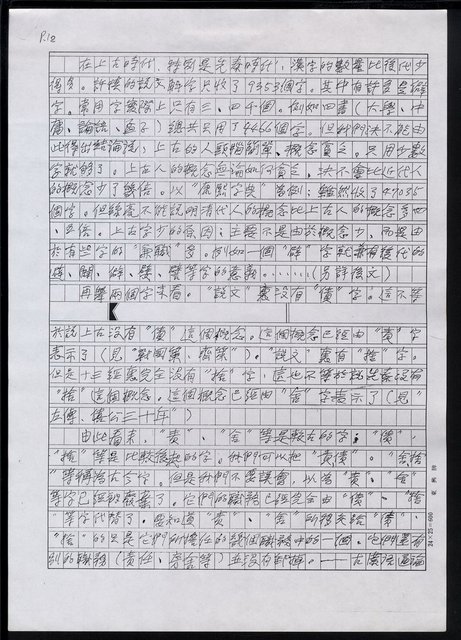 P.12
在上古時代，特別是先秦時代，漢字的數量比後代少
得多。許慎的說文解字只收了9353個字。其中有許多是僻
字，常用字實際上只有三、四千個。例如四書（大學、中
庸、論語、孟子）總共只用了4466個字。但我們決不能由
此得出結論說：上古的人頭腦簡單、概念貧乏。只用少數
字就夠了。上古人的概念無論如何貧乏，決不會比近代人
的概念少了幾倍。以“康熙字典”為例，雖然收了47035
個字。但絲毫不能說明清代人的概念比上古人的概念多四
、五倍。上古字少的原因，主要不是由於概念少，而是由
於有些字的“兼職”多。例如一個“辟”字就兼有後代的
避、闢、僻、嬖、譬等字的意義。……（另詳後文）
再舉兩個字來看。“說文”裏沒有“債”字。這不等
於說上古沒有“債”這個概念。這個概念已經由“責”字
表示了（見“戰國策、齊策”）。“說文”裏有“捨”字。
但是十三經裏完全沒有“捨”字，這也不等於說先秦沒有
“捨”這個概念。這個概念已經由“舍”字表示了（見“
左傳、僖公三十年”）
由此看來，“責”、“舍”等是較古的字，“債”、
“捨”等是比較後起的字。我們可以把“責債”。“舍捨
”等稱為古今字。但是我們不要誤會，以為“責”、“舍”
等字已經被廢棄了。它們的職務已經完全由“債”、“捨
”等字代替了。要知道“責”、“舍”所移交給“債”、
“捨”的只是它們所擔任的幾個職務中的一個。它們還有
別的職務（責任、舍等）並沒有卸掉。
24×25=600